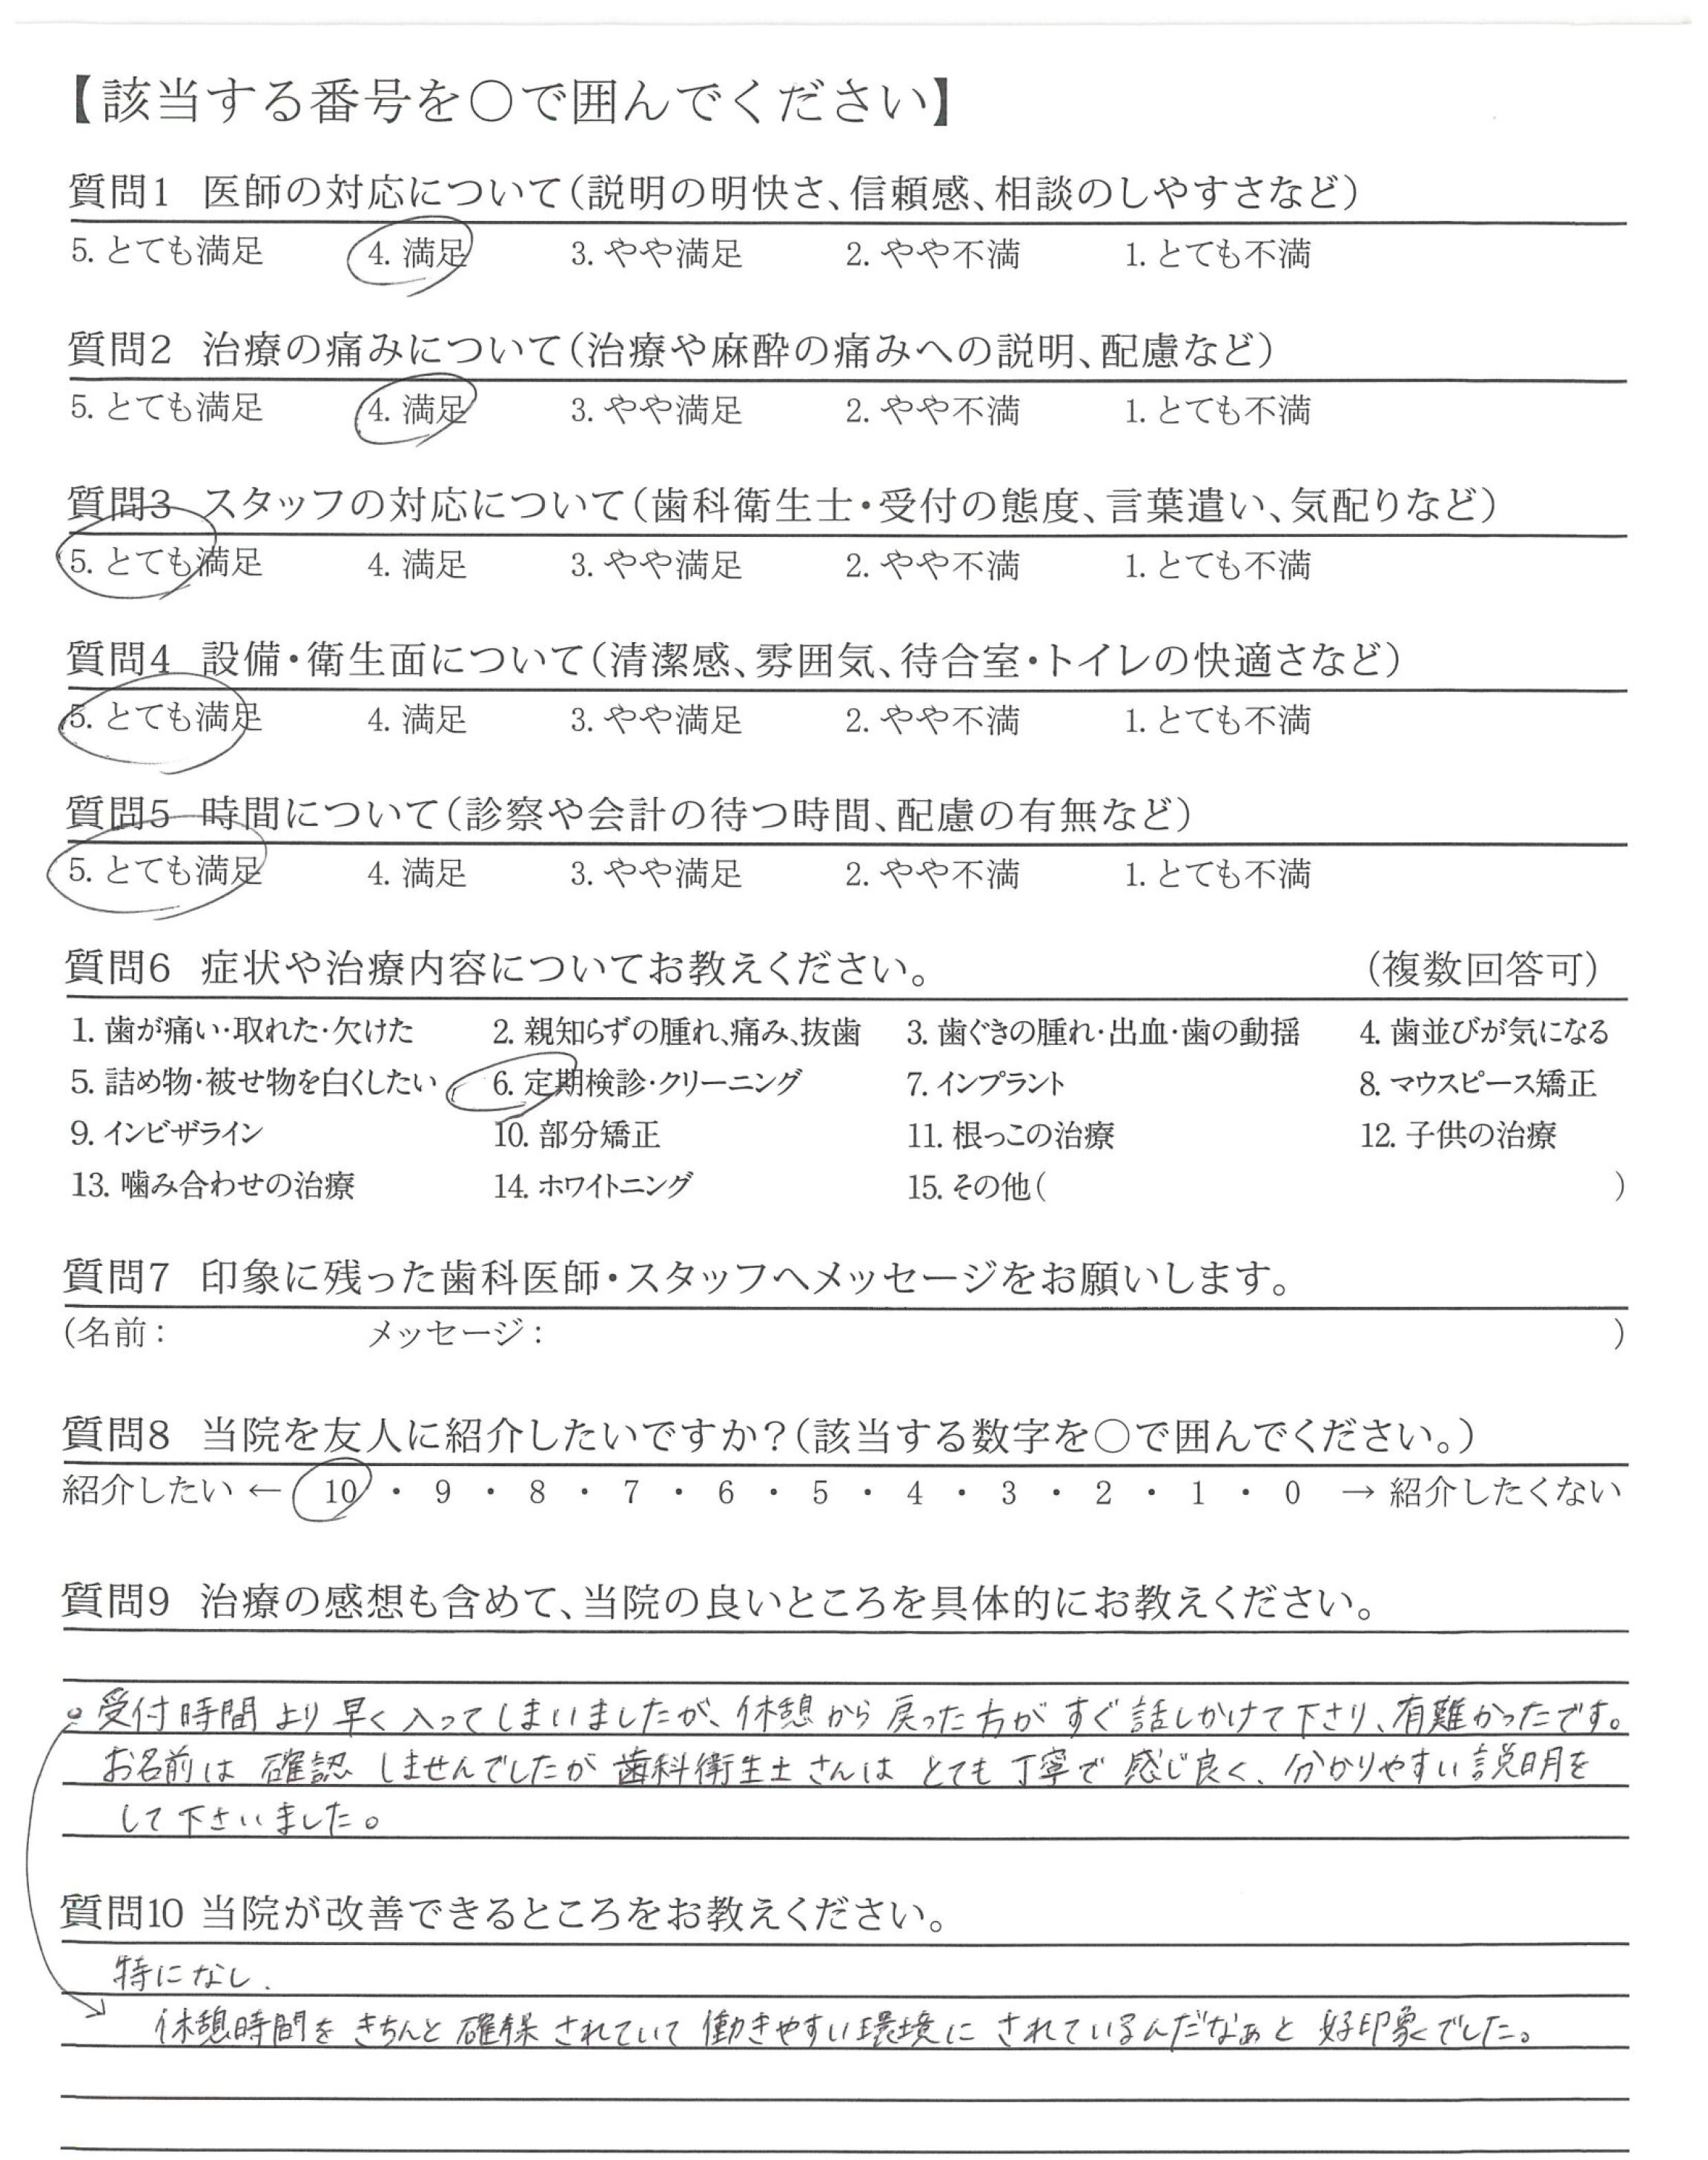 【該当する番号を○で囲んでください】
質問1 医師の対応について(説明の明快さ、信頼感、相談のしやすさなど)
5. とても満足 4. 満足 3. やや満足 2. やや不満 1. とても不満
質問2 治療の痛みについて(治療や麻酔の痛みへの説明、配慮など)
5. とても満足 4. 満足 3. やや満足 2. やや不満 1. とても不満
質問3 スタッフの対応について(歯科衛生士・受付の態度、言葉遣い、気配りなど)
5. とても満足 4. 満足 3. やや満足 2. やや不満 1. とても不満
質問4 設備・衛生面について(清潔感、雰囲気、待合室・トイレの快適さなど)
5. とても満足 4. 満足 3. やや満足 2. やや不満 1. とても不満
質問5 時間について(診察や会計の待つ時間、配慮の有無など)
5. とても満足 4. 満足 3. やや満足 2. やや不満 1. とても不満
質問6 症状や治療内容についてお教えください。 (複数回答可)
1. 歯が痛い・取れた・欠けた 2. 親知らずの腫れ、痛み、抜歯 3. 歯ぐきの腫れ・出血・歯の動揺 4. 歯並びが気になる
5. 詰め物・被せ物を白くしたい 6. 定期検診・クリーニング 7. インプラント 8. マウスピース矯正
9. インビザライン 10. 部分矯正 11. 根っこの治療 12. 子供の治療
13. 噛み合わせの治療 14. ホワイトニング 15. その他( )
質問7 印象に残った歯科医師・スタッフへメッセージをお願いします。
(名前: メッセージ: )
質問8 当院を友人に紹介したいですか?(該当する数字を○で囲んでください。)
紹介したい ← 10 ・ 9 ・ 8 ・ 7 ・ 6 ・ 5 ・ 4 ・ 3 ・ 2 ・ 1 ・ 0 → 紹介したくない
質問9 治療の感想も含めて、当院の良いところを具体的にお教えください。
。受付時間より早く入ってしまいましたが、休憩から戻った方がすぐ話しかけて下さり、有難かったです。
お名前は確認しませんでしたが歯科衛生士さんはとても丁寧で感じ良く、分かりやすい説明を
して下さいました。
質問10 当院が改善できるところをお教えください。
特になし.
→ 休憩時間をきちんと確保されていて働きやすい環境にされているんだなぁと好印象でした。